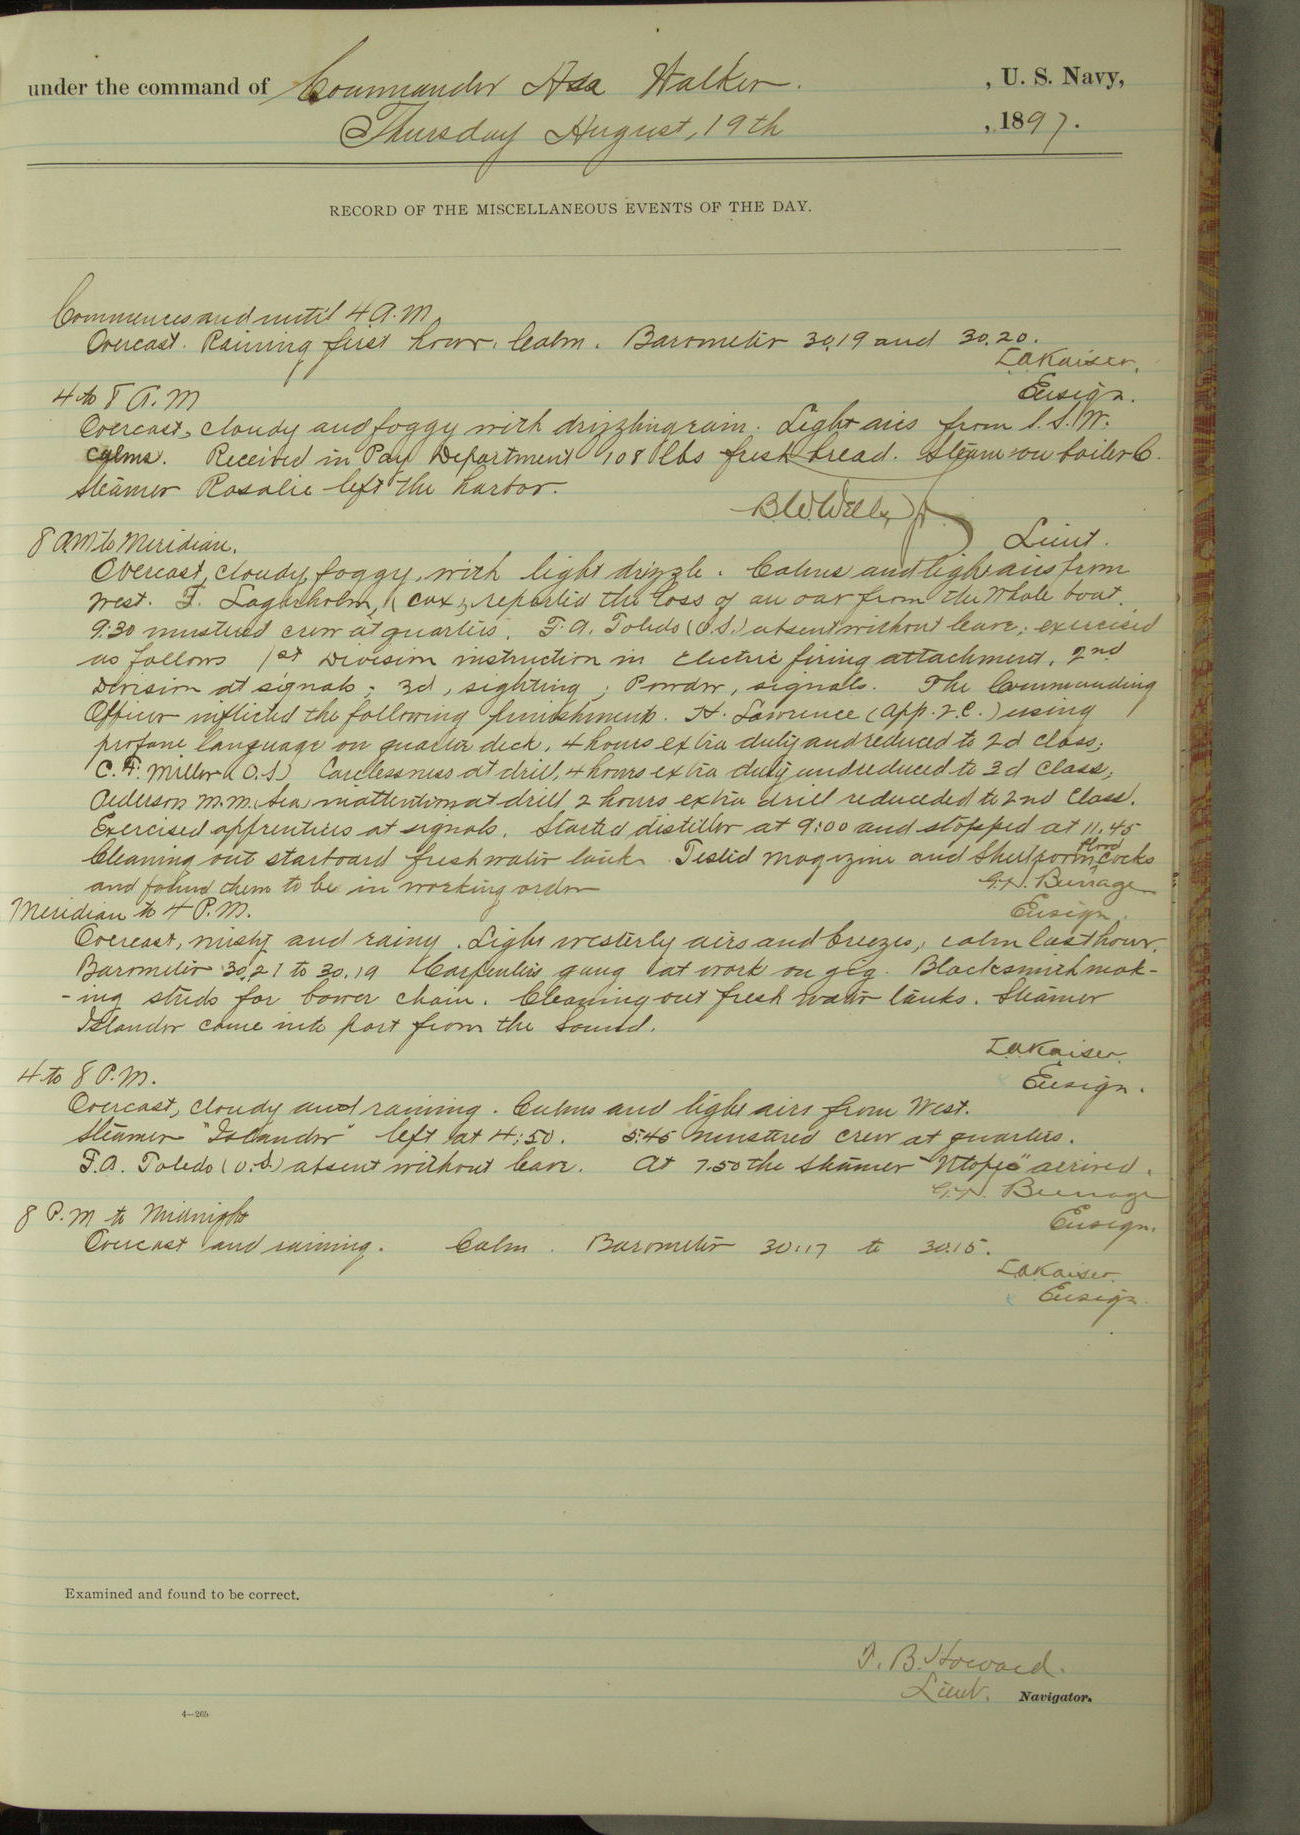 under the command of Commander Asa Walker. , U. S. Navy,
Thursday August, 19th , 1897.
RECORD OF THE MISCELLANEOUS EVENTS OF THE DAY.
Commences and until 4 A.M.
Overcast. Raining first hour. Calm. Barometer 30.19 and 30.20.
L.A. Kaiser.
Ensign.
4 to 8 A.M
Overcast, cloudy and foggy with drizzling rain. Light airs from S.S.W.
calms. Received in Pay Department 108 lbs fresh bread. Steam on boiler C.
Steamer Rosalie left the harbor.
B.W. Wells Jr.
Lieut.
8 AM to Meridian.
Overcast, cloudy, foggy, with light drizzle. Calms and light airs from
West. F. Lagerholm, (cox), reported the loss of an oar from the Whale boat.
9:30 mustered crew at quarters. F.A. Toledo (O.S.) absent without leave; exercised
as follows 1st Division instruction in Electric firing attachment, 2nd
Division at signals; 3d, sighting; Powder, signals. The Commanding
Officer inflicted the following punishments. H. Lawrence (App. 2.C.) using
profane language on quarter deck, 4 hours extra duty and reduced to 2d class;
C.F. Miller (O.S) Carelessness at drill, 4 hours extra duty and reduced to 3d class;
Aederson M.M. (Sea) inattention at drill 2 hours extra drill reduceded to 2nd Class.
Exercised apprentices at signals. Started distiller at 9:00 and stopped at 11.45
Cleaning out starboard freshwater tank. Tested magazine and Shellroom flood cocks
and found them to be in working order
G.N. Burrage
Ensign.
Meridian to 4 P.M.
Overcast, misty and rainy. Light westerly airs and breezes, calm last hour.
Barometer 30.21 to 30.19 Carpenters gang at work on gig. Blacksmith mak-
-ing studs for bower chain. Cleaning out fresh water tanks. Steamer
Islander came into port from the Sound.
L.A. Kaiser.
Ensign.
4 to 8 P.M.
Overcast, cloudy and raining. Calms and light airs from West.
Steamer "Islander" left at 4:50. 5:45 mustered crew at quarters.
F.A. Toledo (O.S.) absent without leave. At 7.50 the steamer "Utopia" arrived.
G.N. Burrage
Ensign.
8 P.M to Midnight
Overcast and raining. Calm. Barometer 30:17 to 30.15.
L.A. Kaiser.
Ensign.
Examined and found to be correct.
F. B. Howard.
Lieut. Navigator.
4—265